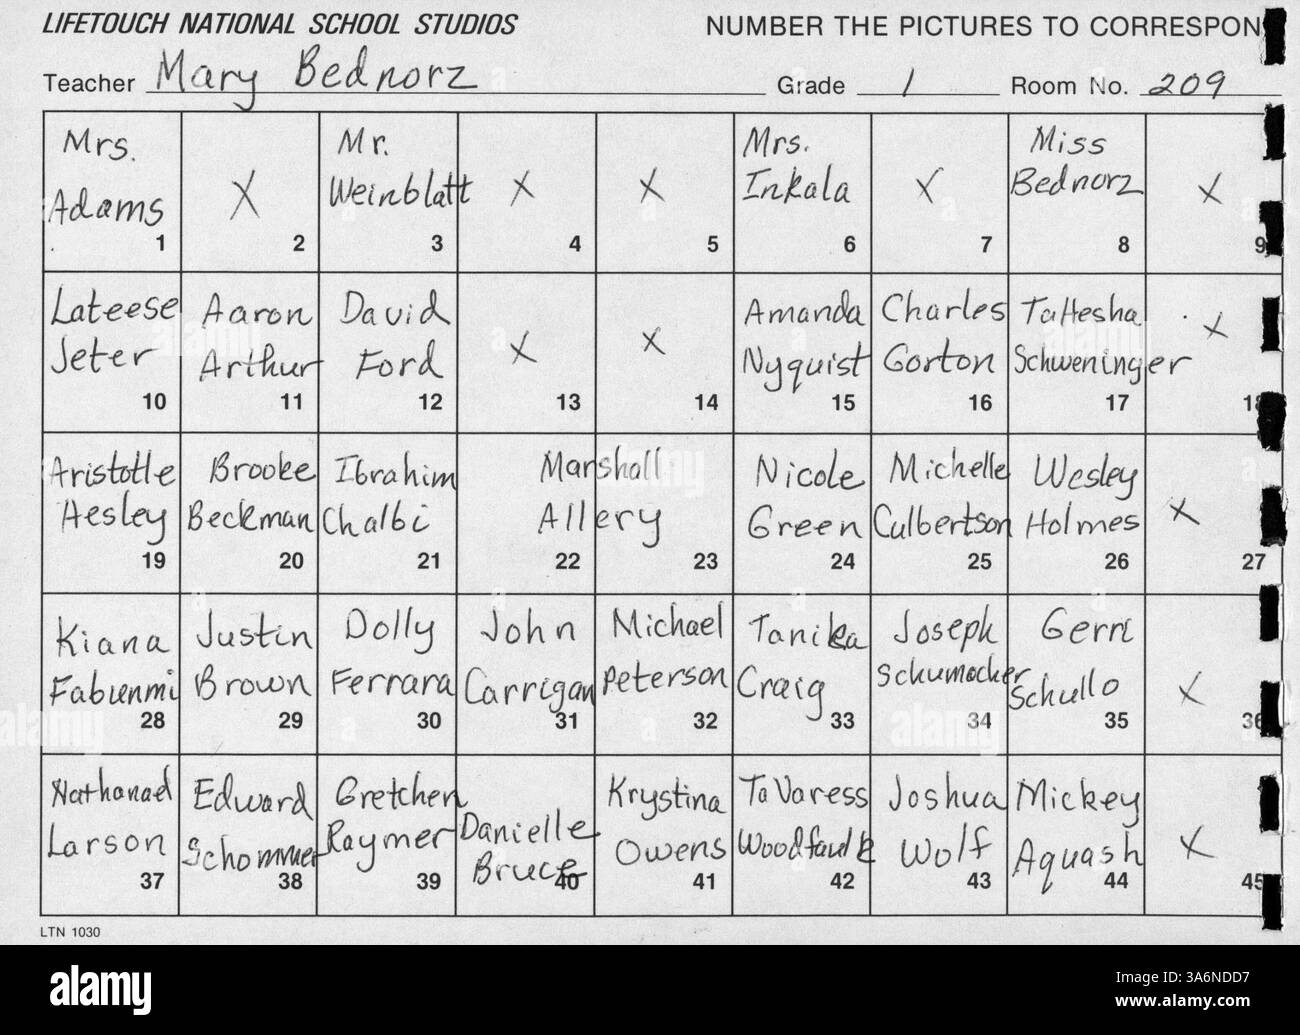 LIFETOUCH NATIONAL SCHOOL STUDIOS NUMBER THE PICTURES TO CORRESPON
Teacher Mary Bednorz Grade 1 Room No. 209
Mrs. Adams 1
X 2
Mr. Weinblatt 3
X 4
X 5
Mrs. Inkala 6
X 7
Miss Bednorz 8
X 9
Lateese Jeter 10
Aaron Arthur 11
David Ford 12
X 13
X 14
Amanda Nyquist 15
Charles Gorton 16
Taltesha Schweninger 17
X 18
Aristotle Hesley 19
Brooke Beckman 20
Ibrahim Chalbi 21
Marshall Allery 22 23
Nicole Green 24
Michelle Culbertson 25
Wesley Holmes 26
X 27
Kiana Fabunmi 28
Justin Brown 29
Dolly Ferrara 30
John Carrigan 31
Michael Peterson 32
Tanika Craig 33
Joseph Schumacher 34
Gerri Schullo 35
X 36
Nathanael Larson 37
Edward Schommer 38
Gretchen Raymer 39
Danielle Bruce 40
Krystina Owens 41
TaVaress Woodfaulk 42
Joshua Wolf 43
Mickey Aquash 44
X 45
LTN 1030
alamy
Image ID: 3A6NDD7
www.alamy.com